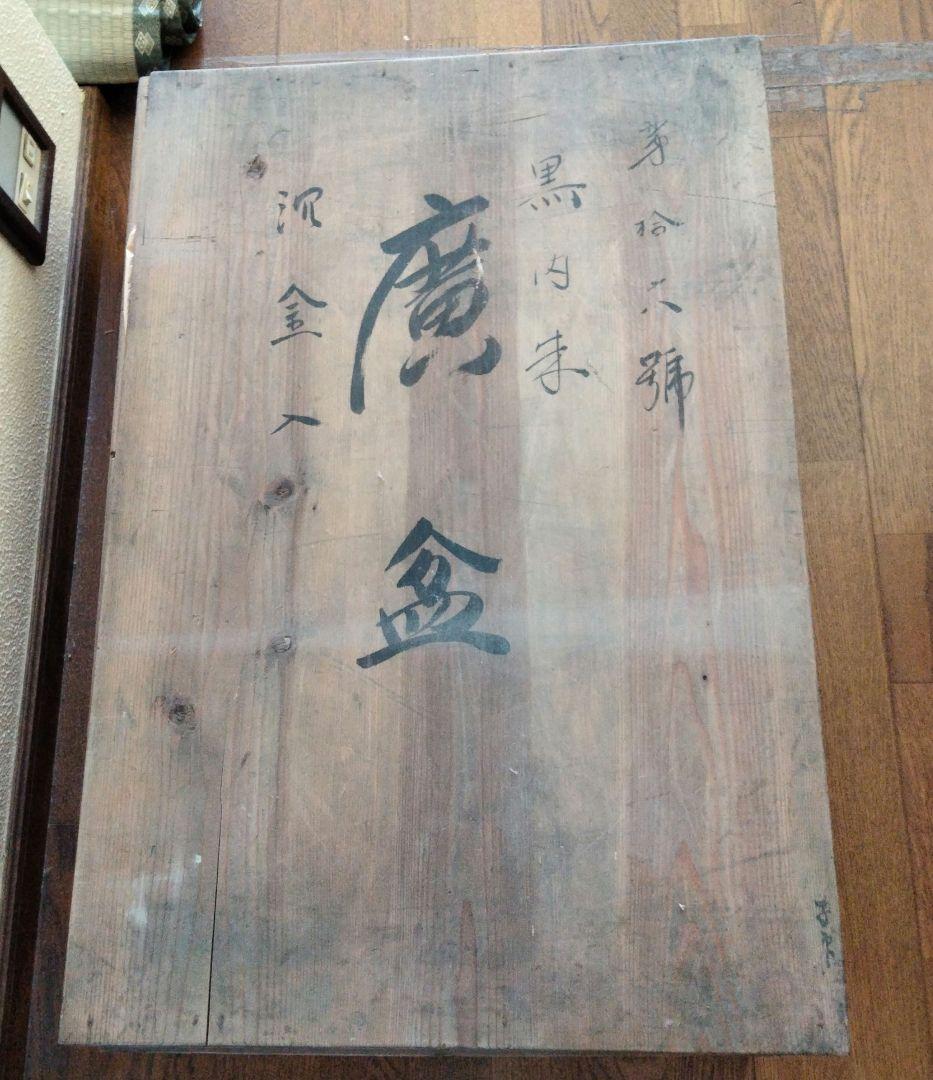 第拾六號
黒内朱
廣盆
沉金入